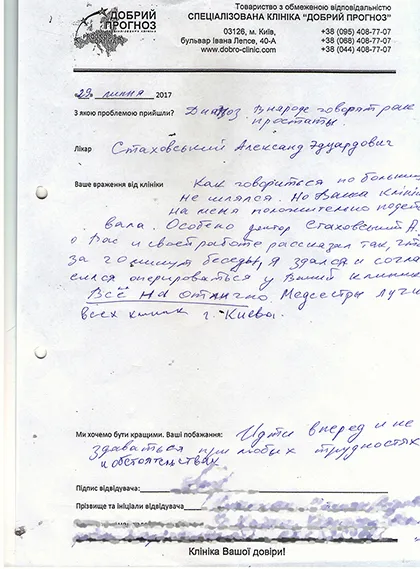 ДОБРИЙ
ПРОГНОЗ
Товариство з обмеженою відповідальністю
СПЕЦІАЛІЗОВАНА КЛІНІКА "ДОБРИЙ ПРОГНОЗ"
03126, м. Київ,
бульвар Івана Лепсе, 40-А
www.dobro-clinic.com
+38 (095) 408-77-07
+38 (068) 408-77-07
+38 (044) 408-77-07
29 липня 2017
З якою проблемою прийшли? Диагноз. В народе говорят рак
простаты.
Лікар Стаховський Александ Эдуардович
Ваше враження від клініки Как говориться по больниц
не шлялся. Но Ваша Клини
на меня положительно
вала. Особено доктор Стаховський А.
о Вас и своей работе рассказал так, что
за 20 минут беседы, я здался и согла
сился оперироваться у Вашей клинике
Всё на отлично. Медсестры лучш
всех клиник г. Киева.
Ми хочемо бути кращими. Ваші побажання: Идти вперед и не
здаваться при любых трудностях
и обстоятельствах
Підпис відвідувача:
Прізвище та ініціали відвідувача
Клініка Вашої довіри!